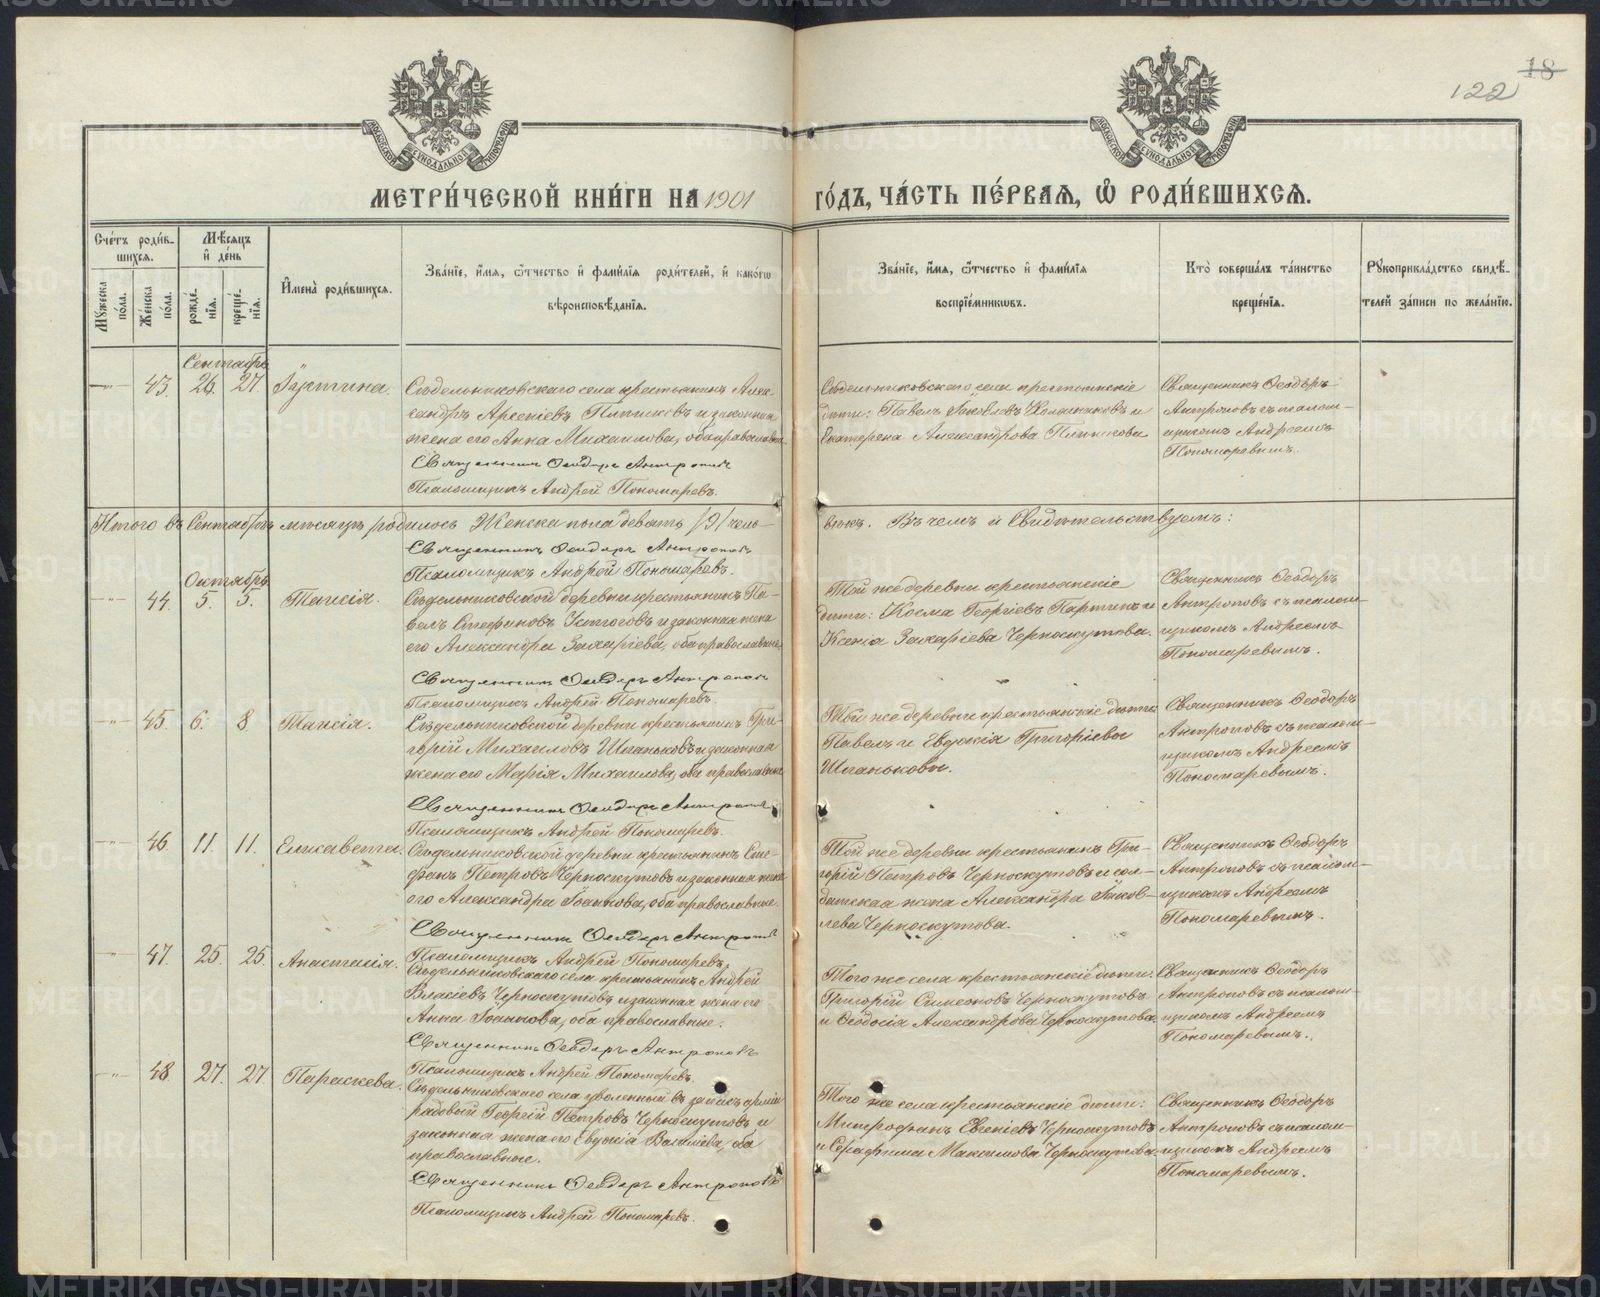 18
122
МОСКОВСКОЙ СѴНОДАЛЬНОЙ ТИПОГРАФІИ
МОСКОВСКОЙ СѴНОДАЛЬНОЙ ТИПОГРАФІИ
МЕТРИ́ЧЕСКОЙ КНИ́ГИ НА 1901 ГО́ДЪ, ЧА́СТЬ ПЕ́РВАЯ, Ѡ҆ РОДИ́ВШИХСЯ.
Сче́тъ роди́в-
шихся.
Мѣ́сяцъ
и҆ де́нь
Мꙋ́жеска
по́ла.
Же́нска
по́ла.
рожде́-
нїя.
креще́-
нїя.
И҆мена̀ роди́вшихся.
Зва́нїе, и҆́мя, ѻ҆́тчество и҆ фами́лїя роди́телей, и҆ како́гѡ
вѣроисповѣ́данїя.
Зва́нїе, и҆́мя, ѻ҆́тчество и҆ фами́лїя
воспрїе́мниковъ.
Кто̀ соверша́лъ та́инство
креще́нїя.
Рꙋкоприкла́дство свидѣ́-
телей за́писи по жела́нїю.
Сентябрь
—„— 43. 26. 27. Іустина.
Сѣдельниковскаго села крестьянинъ Алек-
сандръ Арсеніевъ Плишковъ и законная
жена его Анна Михаилова, оба православные
Священникъ Ѳеодоръ Антроповъ
Псаломщикъ Андрей Пономаревъ.
Седельниковскаго села крестьянскіе
дѣти: Павелъ Іаковлевъ Колашниковъ и
Екатерина Александрова Плишкова
Священникъ Ѳеодоръ
Антроповъ съ псалом-
щикомъ Андреемъ
Пономаревымъ.
Итого въ Сентябрѣ мѣсяцѣ родилось Женска пола девять /9/ чело-
вѣкъ. Въ чемъ и Свидѣтельствуемъ:
Священникъ Ѳеодоръ Антроповъ
Псаломщикъ Андрей Пономаревъ.
Октябрь
—„— 44. 5. 5. Таисія.
Сѣдельниковской деревни крестьянинъ Па-
велъ Стефановъ Устюговъ и законная жена
его Александра Захаріева, оба православные.
Священникъ Ѳеодоръ Антроповъ
Псаломщикъ Андрей Пономаревъ.
Той же деревни крестьянскіе
дѣти: Косма Георгіевъ Партинъ и
Ксенія Захаріева Черноскутова.
Священникъ Ѳеодоръ
Антроповъ съ псалом-
щикомъ Андреемъ
Пономаревымъ.
—„— 45. 6. 8 Таисія.
Сѣдельниковской деревни крестьянинъ Гри-
горій Михаиловъ Шпаньковъ и законная
жена его Марія Михаилова, оба православные
Священникъ Ѳеодоръ Антроповъ
Псаломщикъ Андрей Пономаревъ.
Той же деревни крестьянскіе дѣти:
Павелъ и Евдокія Григоріевы
Шпаньковы.
Священникъ Ѳеодоръ
Антроповъ съ псалом-
щикомъ Андреемъ
Пономаревымъ.
—„— 46. 11. 11. Елисавета.
Сѣдельниковской деревни крестьянинъ Сте-
фанъ Петровъ Черноскутовъ и законная жена
его Александра Іоаннова, оба православные.
Священникъ Ѳеодоръ Антроповъ
Псаломщикъ Андрей Пономаревъ.
Той же деревни крестьянинъ Гри-
горій Петровъ Черноскутовъ и сол-
датская жена Александра Іаков-
лева Черноскутова.
Священникъ Ѳеодоръ
Антроповъ съ псалом-
щикомъ Андреемъ
Пономаревымъ.
—„— 47. 25. 25. Анастасія.
Сѣдельниковскаго села крестьянинъ Андрей
Власіевъ Черноскутовъ и законная жена его
Анна Іоаннова, оба православные.
Священникъ Ѳеодоръ Антроповъ
Псаломщикъ Андрей Пономаревъ.
Того же села крестьянскіе дѣти:
Григорій Симеоновъ Черноскутовъ
и Ѳеодосія Александрова Черноскутова.
Священникъ Ѳеодоръ
Антроповъ съ псалом-
щикомъ Андреемъ
Пономаревымъ.
—„— 48 27. 27 Параскева.
Сѣдельниковскаго села уволенный въ запасъ арміи
рядовый Георгій Петровъ Черноскутовъ и
законная жена его Евдокія Василіева, оба
православные.
Священникъ Ѳеодоръ Антроповъ
Псаломщикъ Андрей Пономаревъ.
Того же села крестьянскіе дѣти:
Митрофанъ Евгеніевъ Черноскутовъ
и Серафима Максимова Черноскутова.
Священникъ Ѳеодоръ
Антроповъ съ псалом-
щикомъ Андреемъ
Пономаревымъ.
METRIKI.GASO-URAL.RU